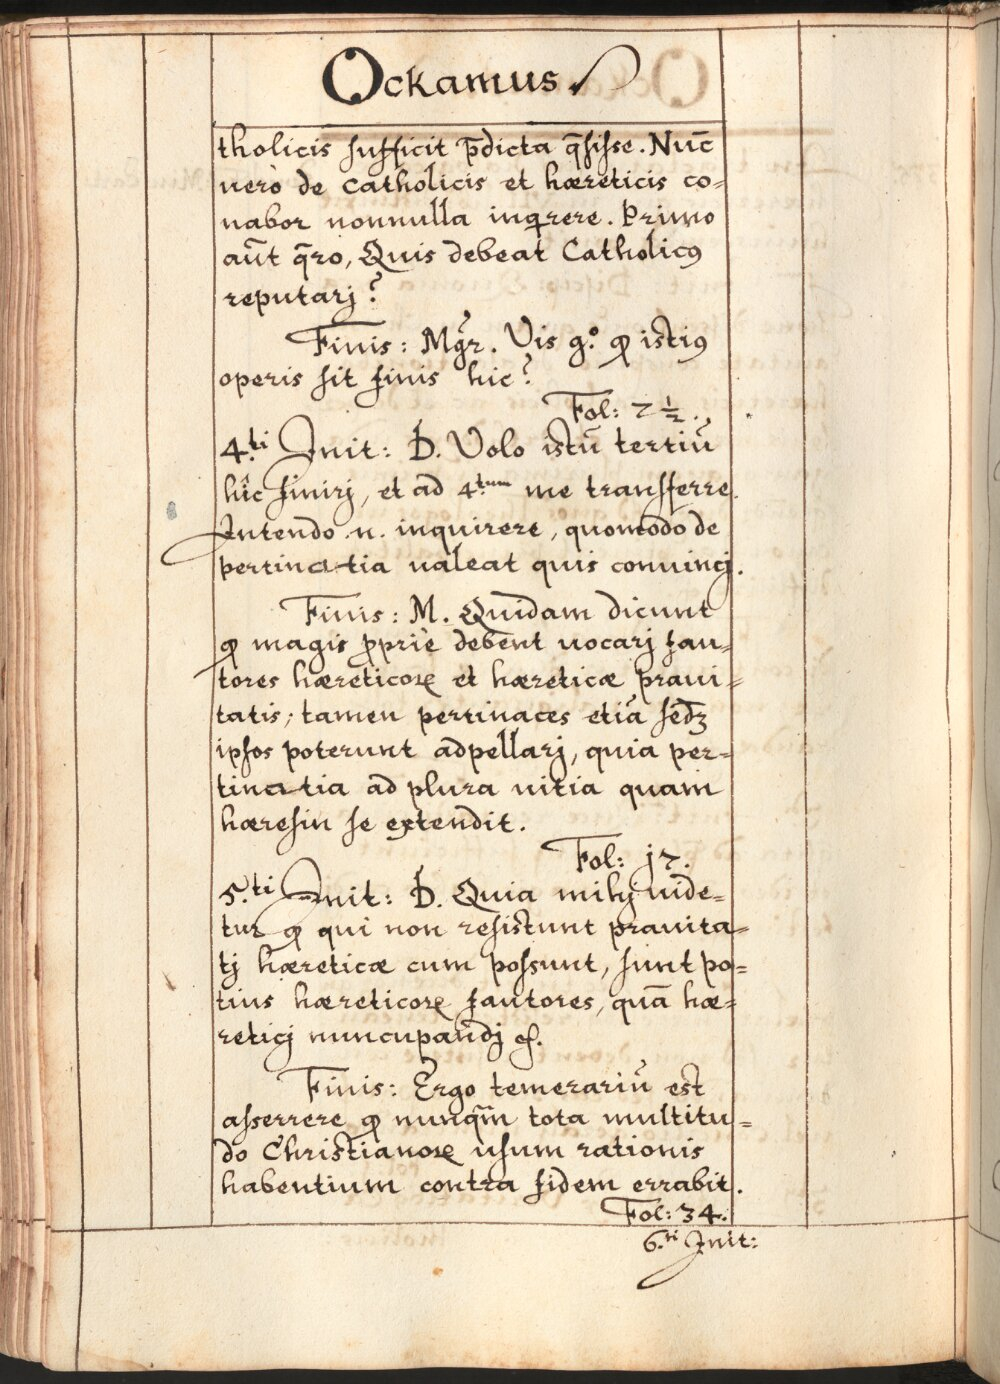 Ockamus.
tholicis sufficit p̄dicta q̄sisse. Nuc̄
uerò de catholicis et hæreticis co=
nabor nonnulla inqrere. Primo
aūt q̄ro, Quis debeat Catholicꝰ
reputarj?
Finis: Mgr̄. Vis g.º ꝙ istiꝰ
operis sit finis hic?
Fol: 7 ½.
4.ti Init: D. Volo istū tertiū
hîc finirj, et ad 4.tum me transferre.
Intendo .n. inquirere, quomodo de
pertinatia ualeat quis conuincj.
Finis: M. Quidam dicunt
ꝙ magis ꝓpriè debent uocarj fau=
tores hæreticoꝝ et hæreticæ praui=
tatis; tamen pertinaces etiā secdꝫ
ipsos poterunt adpellarj, quia per=
tinatia ad plura uitia quam
hæresin se extendit.
Fol: j7.
5.ti Init: D. Quia mihj uide=
tur ꝙ qui non resistunt prauita=
tj hæreticæ cum possunt, sunt po=
tius hæreticoꝝ fautores, quā hæ=
reticj nuncupandj ēs.
Finis: Ergo temerariū est
asserrere ꝙ nunqm̄ tota multitu=
do Christianoꝝ usum rationis
habentium contra fidem errabit.
Fol: 34.
6.ti Init: